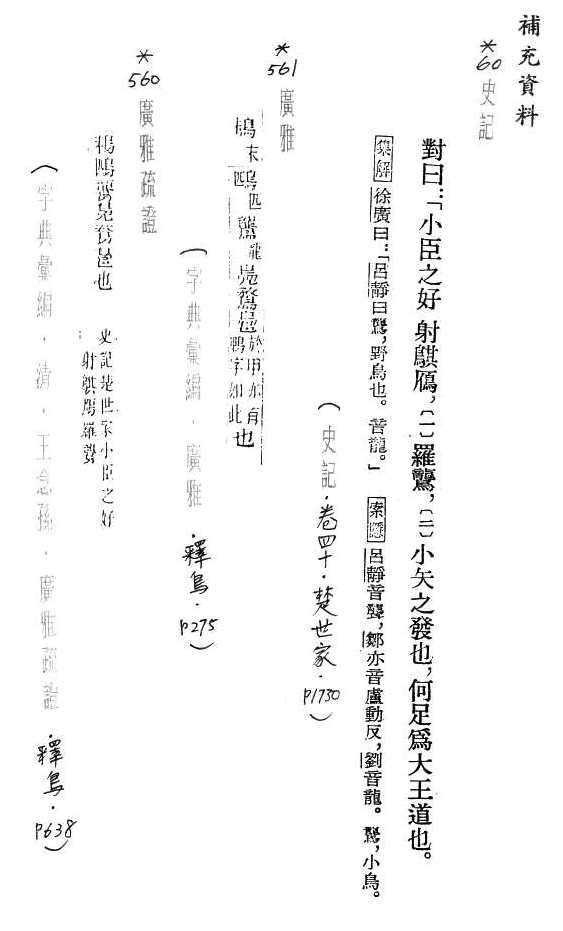 補充資料
*60 史記
對曰：「小臣之好射鶀鴈，〔一〕羅鸗，〔二〕小矢之發也，何足爲大王道也。
集解 徐廣曰：「呂靜曰鸗，野鳥也。音龍。」 索隱 呂靜音聾，鄒亦音盧動反，劉音龍。鸗，小鳥。
（史記．卷四十．楚世家．P1730）
*561 廣雅
也
（字典彙編．廣雅．釋鳥．P275）
*560 廣雅疏證
也
史記楚世家小臣之好
射鶀鴈羅鸗
（字典彙編．清．王念孫．廣雅疏證．釋鳥．P638）